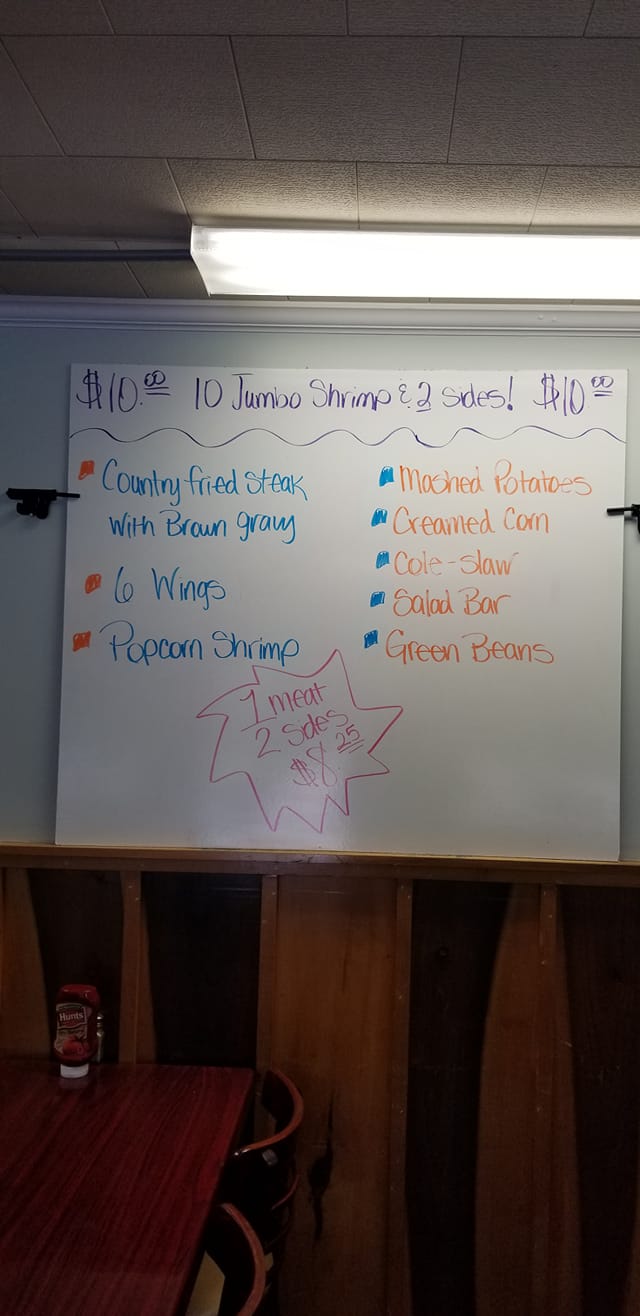 $10.00 10 Jumbo Shrimp & 2 sides! $10.00
Country fried Steak
with Brown gravy
6 Wings
Popcorn Shrimp
Mashed Potatoes
Creamed Corn
Cole-Slaw
Salad Bar
Green Beans
1 meat
2 Sides
$8.25
Hunt's